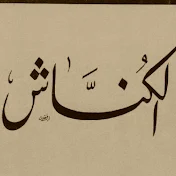 الكُنَّاش